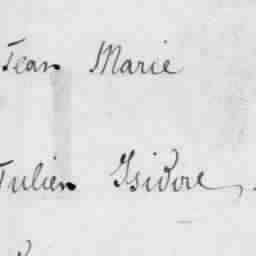 Jean Marie
Julien Isidore